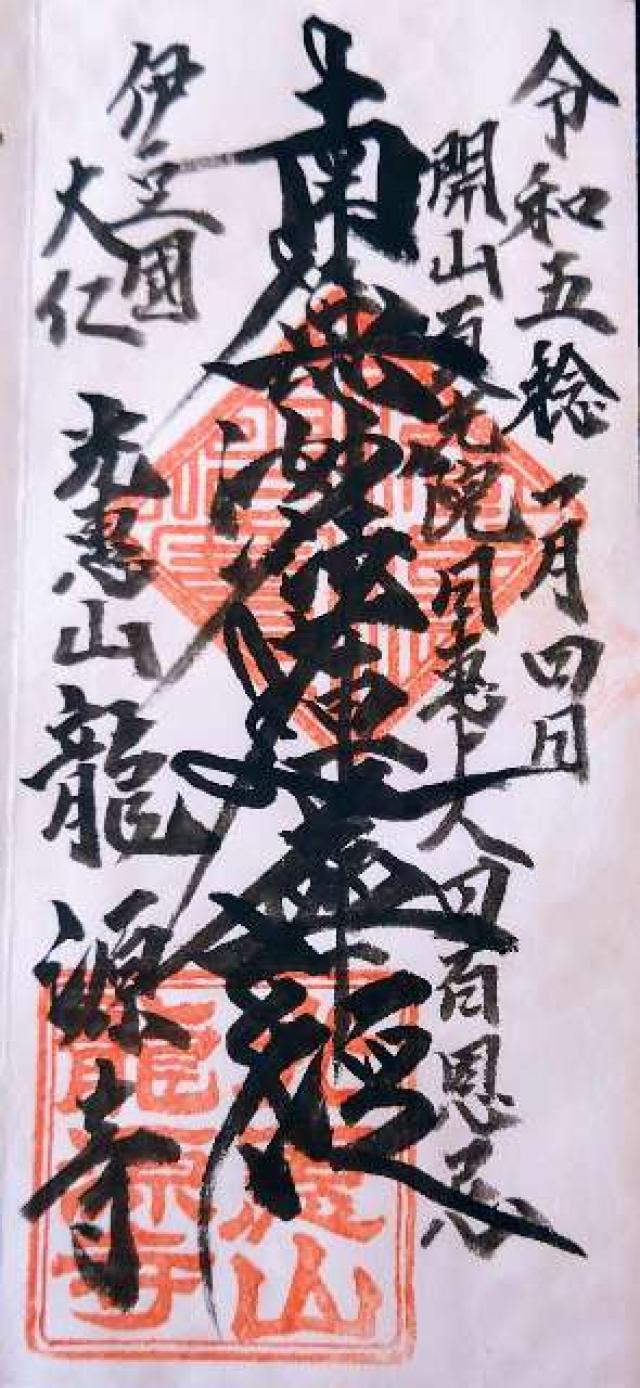 令和五稔 一月四日
開山 光院日惠上人四百恩忌
南無妙法蓮華經
伊豆國
大仁 光惠山 龍源寺
光惠山
龍源寺